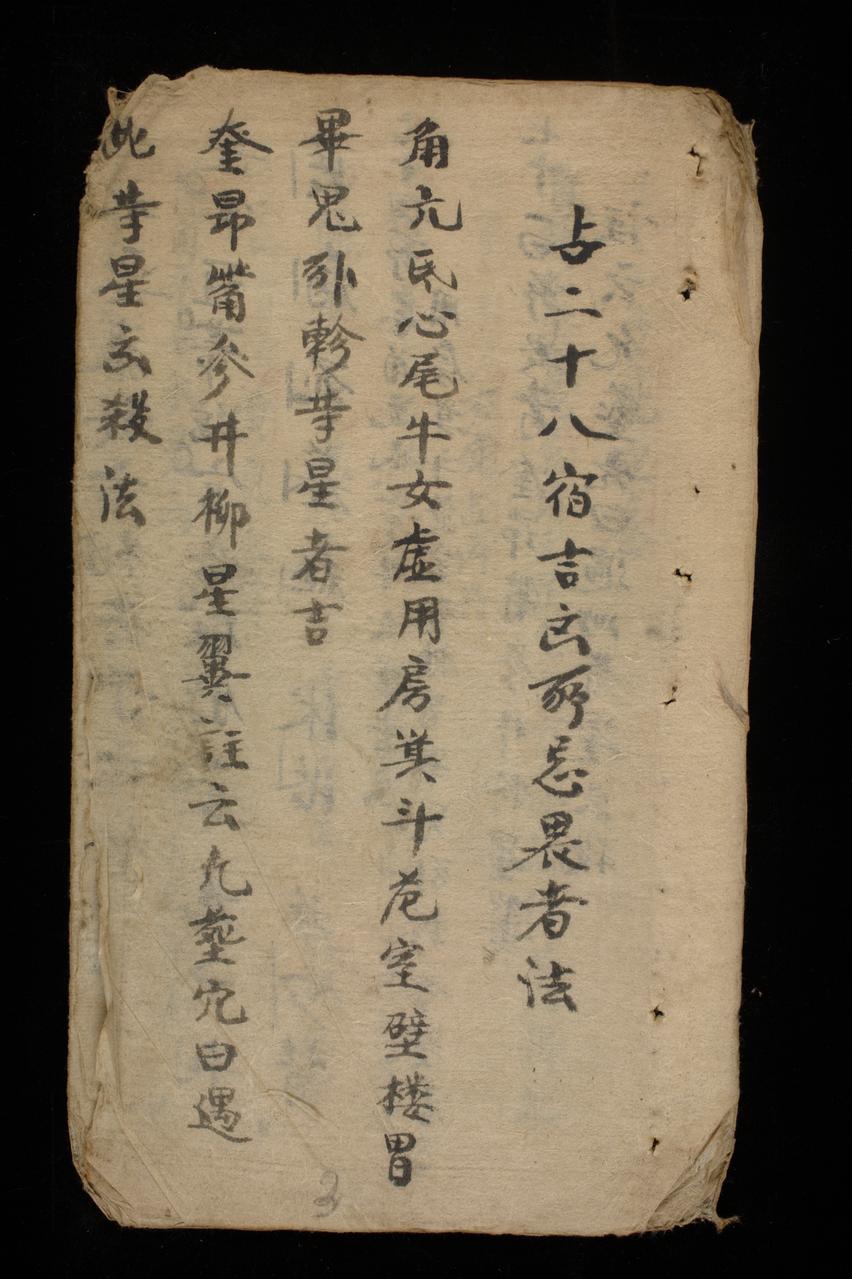 占二十八宿吉凶所忌畏者法
角亢氐心尾牛女虚用房箕斗危室壁楼胃
畢鬼卧軫等星者吉
奎昂觜参井柳星翼註云凡塟穴曰遇
此等星凶殺法
3